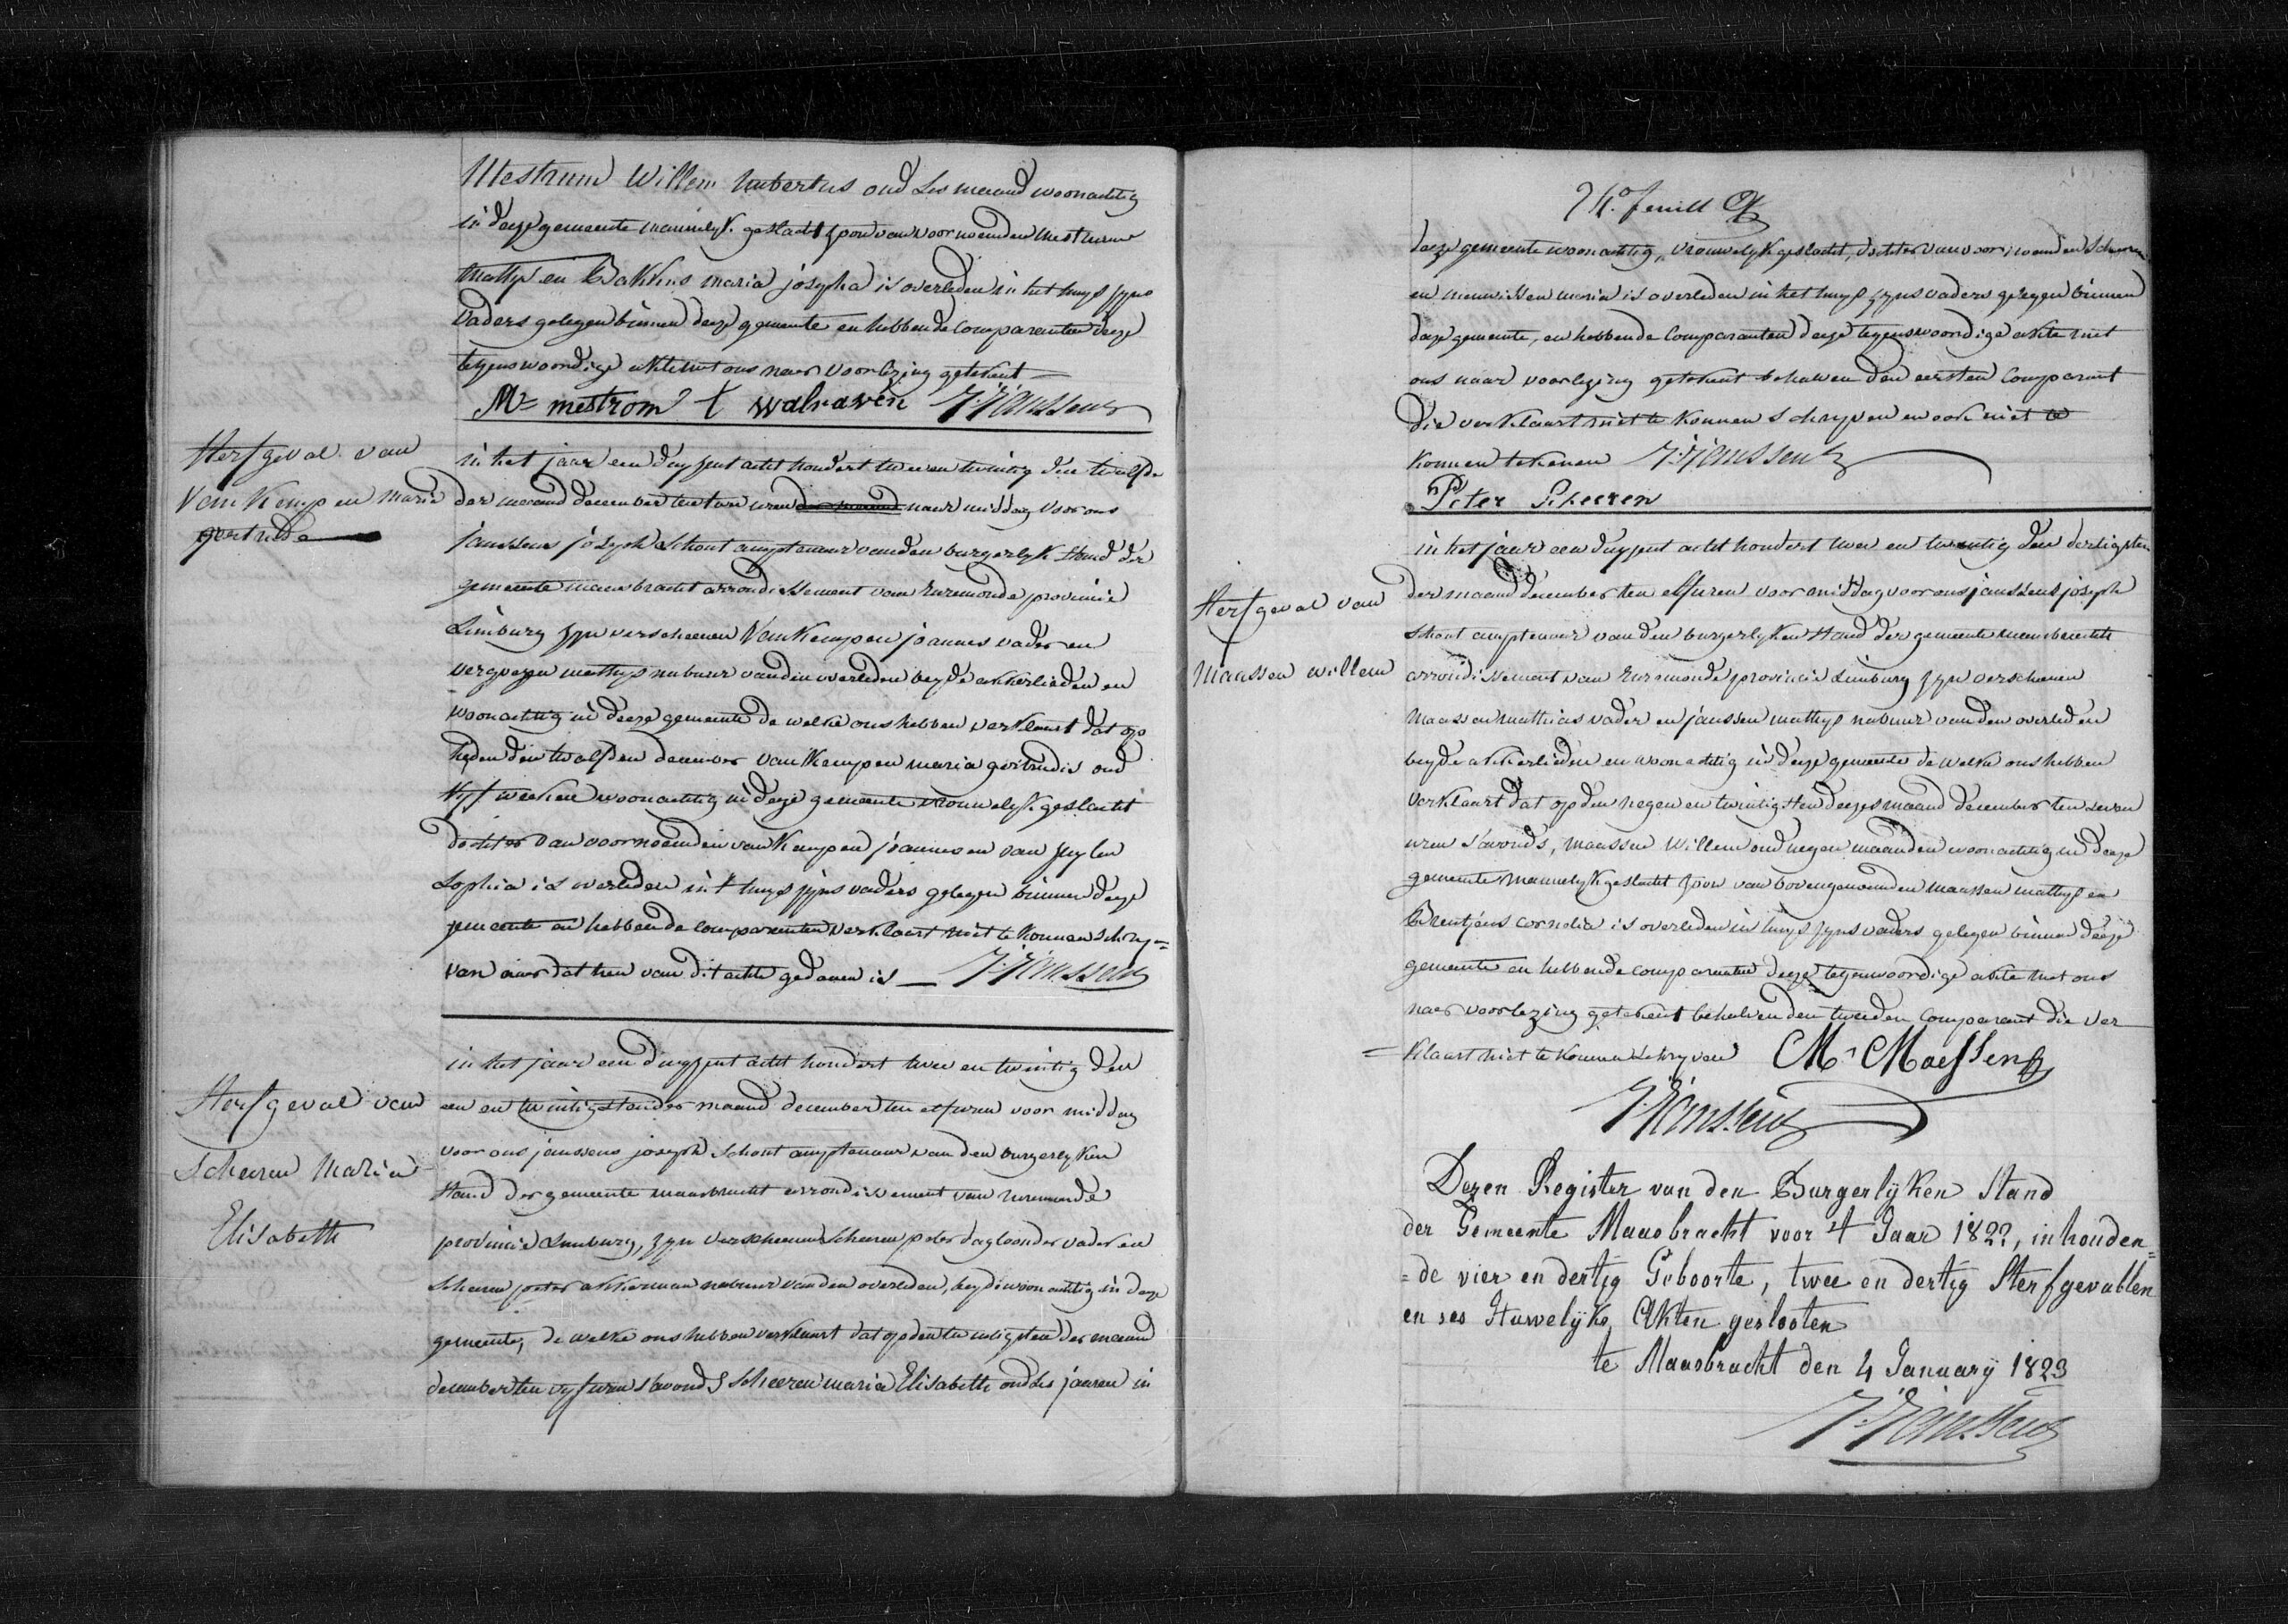 Mestrum Willem hubertus oud ses maand woonachtig
in deeze gemeente mannelyk geslacht zoon van voornoemden mestrum
mattys en Bakkus maria josepha is overleden in het huys zyns
vaders gelegen binnen deeze gemeente en hebben de comparanten deeze
tegenswoordige akte met ons naer voorlezing getekent
M= mestrom t walraven J: Janssens
Sterfgeval van
Van Kempen Maria
gertrude
in het jaar een duyzent acht hondert twee en twintig den twelfde
der maand december ten twe uren der maand naer middag voor ons
janssens joseph schout amptenaar van den burgerlyk stand der
gemeente maasbracht arrondissement van ruremonde provincie
Limburg zyn verscheenen Van Kempen joannes vader en
vergoezen mattys nabuur van den overleden beyde akkerlieden en
woonachtig in deeze gemeente de welke ons hebben verklaart dat op
heden den twelfden december van Kempen maria gertrudis oud
vyf weeken woonachtig in deeze gemeente vrouwelyk geslacht
dochter van voornoemden van Kempen joannes en van zuylen
Sophia is overleden in t huys zyns vaders gelegen binnen deeze
gemeente en hebben de comparanten verklaert niet te konnen schry=
ven aver dat hen van dit akte gedaen is J: Janssens
Sterfgeval van
Scheeren Maria
Elisabeth
in het jaar een duyzent acht hondert twee en twintig den
een en twintigsten der maand december ten elf uren voor middag
voor ons janssens joseph schout amptenaar van den burgerlyken
stand der gemeente maasbracht arrondissement van ruremonde
provincie Limburg, zyn verscheenen Scheeren peter dagloonder vader en
Scheeren peeter akkerman nabuur van den overleden, beyde woonachtig in deze
gemeente, de welke ons hebben verklaart dat op den twintigsten der maand
december ten vyf uren s'avonds Scheeren maria Elisabeth oud ses jaaren in
24.e feuill
deeze gemeente woonachtig, vrouwelyk geslacht, dochter van voornoemden Scheeren
en meuwissen maria is overleden in het huys zyns vaders gelegen binnen
deeze gemeente, en hebben de Comparanten deeze tegenswoordige akte met
ons naar voorlezing getekent behalven den eersten Comparant
die verklaart niet te konnen schryven en ook niet te
konnen tekenen J: Janssens
Peter Scheeren
Sterfgeval van
Maassen willem
in het jaar een duyzent acht hondert twee en twentig den dertigsten
der maand december ten elf uren voor middag voor ons janssens joseph
schout amptenaar van den burgerlyken stand der gemeente maasbracht
arrondissement van ruremonde provincie Limburg zyn verschenen
maassen matthias vader en janssen mattys nabuur van den overleden
beyde akkerlieden en woonachtig in deeze gemeente de welke ons hebben
verklaart dat op den negen en twintigsten deezes maand december ten seven
uren s'avonds, maassen Willem oud negen maanden woonachtig in deeze
gemeente mannelyk geslacht zoon van bovengenoemden maassen mattys en
Brentjens cornelia is overleden in huys zyns vaders gelegen binnen deeze
gemeente en hebben de comparanten deeze tegenwoordige akte met ons
naer voorlezing getekent behalven den tweeden Comparant die ver
= klaart niet te konnen schryven M: Maessen
J: Janssens
Dezen Register van den Burgerlyken Stand
der Gemeente Maasbracht voor 't Jaar 1822, inhouden=
=de vier en dertig Geboorte, twee en dertig Sterfgevallen
en ses Huwelyks Akten geslooten
te Maasbracht den 4 January 1823
J: Janssens